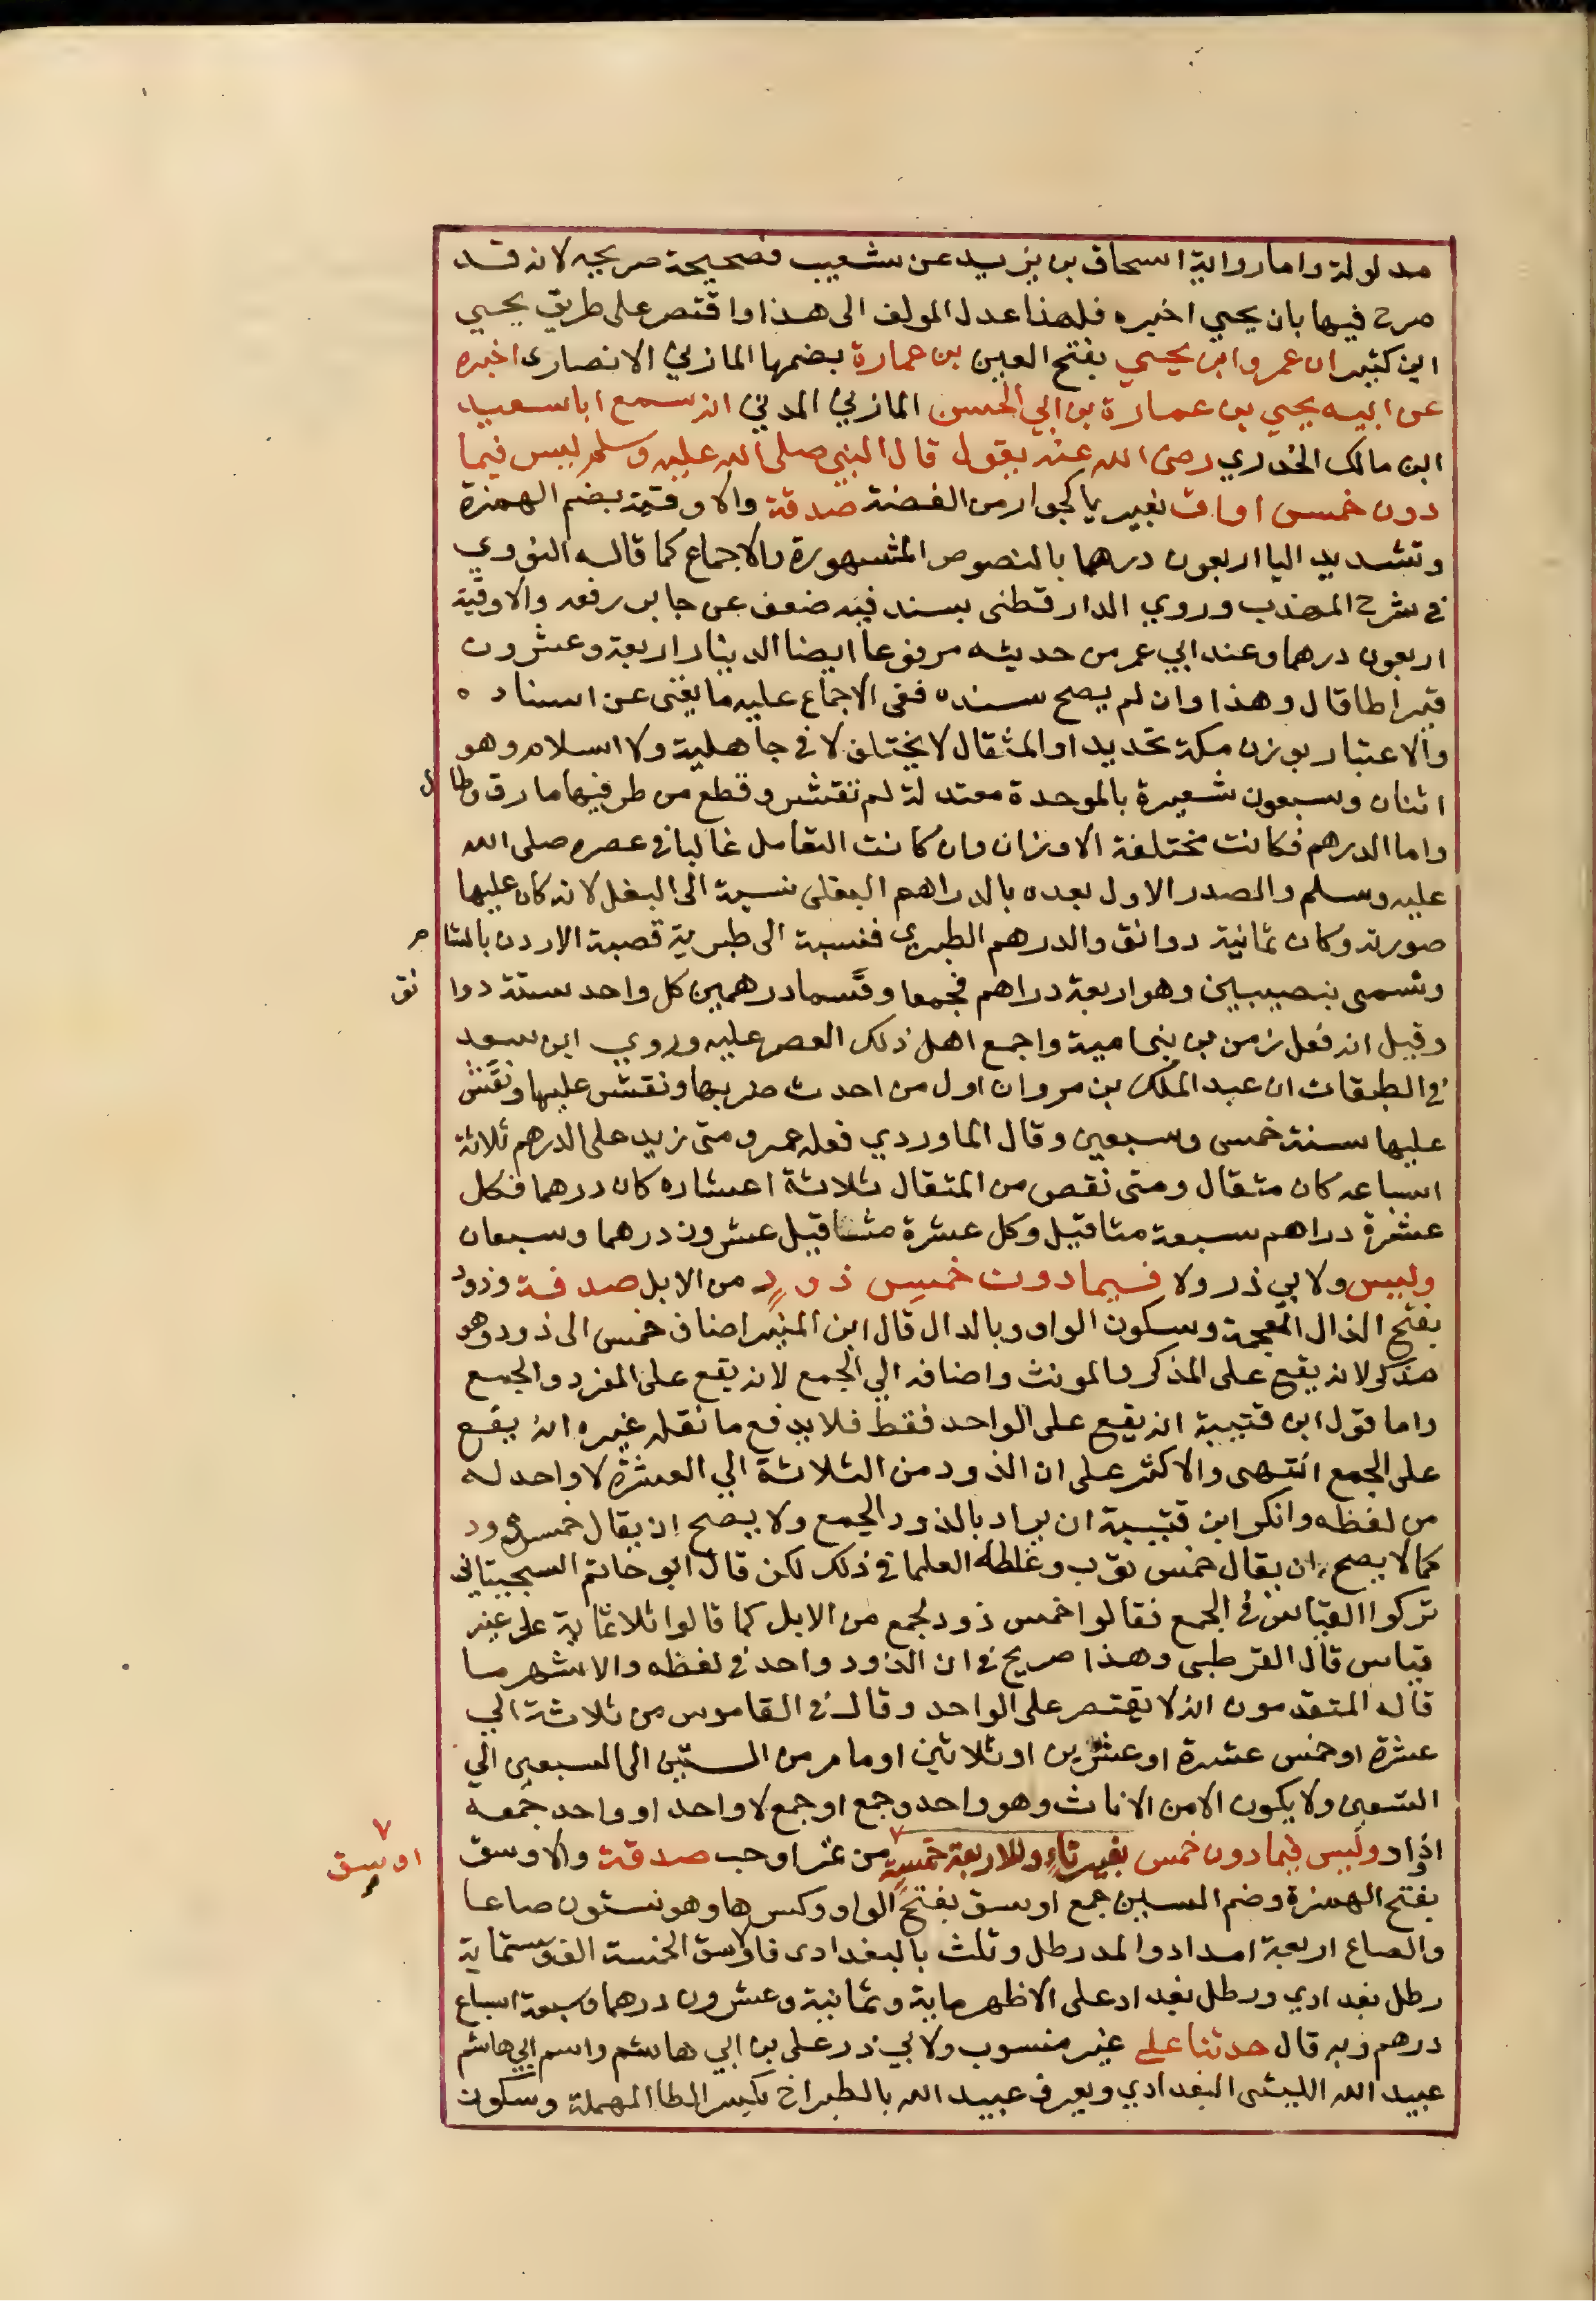 مدلولة واما رواية اسحاق بن يزيد عن شعيب فصحيحة صريحه لانه قد
صرح فيها بان يحيي اخبره فلهذا عدل المولف الى هذا واقتصر على طريق يحيي
ابن كثير ان عمرو ابن يحيي بفتح العين بن عمارة بضمها المازني الانصارى اخبره
عن ابيه يحيي بن عمارة بن ابي الحسن المازني المدني انه سمع ابا سعيد
ابن مالك الخدري رضى الله عنه يقول قال النبي صلى الله عليه وسلم ليس فيما
دون خمس اواق بغير يا كجوار من الفضة صدقة والاوقية بضم الهمزة
وتشديد اليا اربعون درهما بالنصوص المشهورة والاجماع كما قاله النووي
في شرح المهذب وروي الدارقطنى بسند فيه ضعف عن جابر رفعه والاوقية
اربعون درهما وعند ابي عمر من حديثه مرفوعا ايضا الدينار اربعة وعشرون
قيراطا قال وهذا وان لم يصح سنده ففى الاجماع عليه ما يغنى عن اسناده
والاعتبار بوزن مكة تحديدا والمثقال لا يختلف لا في جاهلية ولا اسلام وهو
اثنان وسبعون شعيرة بالموحدة معتدلة لم تقتشر وقطع من طرفيها ما رق وطال
واما الدرهم فكانت مختلفة الاوزان وان كانت التعامل غالبا في عصره صلى الله
عليه وسلم والصدر الاول بعده بالدراهم البغلى نسبة الى البغل لانه كان عليها
صورته وكان ثمانية دوانق والدرهم الطبري فنسبة الى طبرية قصبة الاردن بالشام
وتسمى بنصيبين وهو اربعة دراهم فجمعا وقسما درهمين كل واحد ستة دوانق
وقيل انه فعل زمن بن بنى امية واجمع اهل ذلك العصر عليه وروي ابن سعد
في الطبقات ان عبد الملك بن مروان اول من احدث ضربها ونقش عليها ونقش
عليها سنة خمس وسبعين وقال الماوردي فعله عمر ومتى زيد على الدرهم ثلاثة
اسباعه كان مثقال ومتى نقص من المثقال ثلاثة اعشاره كان درهما فكل
عشرة دراهم سبعة مثاقيل وكل عشرة مثاقيل عشرون درهما وسبعان
وليس ولابي ذر ولا فيما دون خمس ذودٍ من الابل صدقة وذود
بفتح الذال المعجمة وسكون الواو وبالدال قال ابن المنير اضاف خمس الى ذود وهو
مذكر لانه يقع على المذكر والمونث واضافه الي الجمع لانه يقع على المفرد والجمع
واما قول ابن قتيبة انه يقع على الواحد فقط فلا يدفع ما نقله غيره انه يقع
على الجمع انتهى والاكثر على ان الذود من الثلاثة الي العشرة لا واحد له
من لفظه وانكر ابن قتيبة ان يراد بالذود الجمع ولا يصح ان يقال خمس ذود
كما لا يصح ان يقال خمس ثوب وغلطه العلما في ذلك لكن قال ابو حاتم السجستانى
تركوا القياس في الجمع فقالوا خمس ذود لجمع من الابل كما قالوا ثلاثماية على غير
قياس قال القرطبى وهذا صريح في ان الذود واحد في لفظه والاشهر ما
قاله المتقدمون انه لا يقتصر على الواحد وقال في القاموس من ثلاثة الي
عشرة او خمس عشرة او عشرين او ثلاثين او ما مر من الستين الى السبعين الي
التسعين ولا يكون الا من الاناث وهو واحد وجمع او جمع لا واحد او واحد جمعه
اذواد وليس فيما دون خمس بغير تاء وللاربعة خمسة اوسق من ثمر او حب صدقة والاوسق
بفتح الهمزة وضم السين جمع اوسق بفتح الواو وكسرها وهو ستون صاعا
والصاع اربعة امداد والمد رطل وثلث بالبغدادى فاوسق الخمسة الف وستماية
رطل بغدادي ورطل بغداد على الاظهر ماية وثمانية وعشرون درهما وسبعة اسباع
درهم وبه قال حدثنا على غير منسوب ولابي ذر على بن ابي هاشم واسم ابي هاشم
عبيد الله الليثى البغدادي ويعرف عبيد الله بالطبراخ بكسر الطا المهملة وسكون